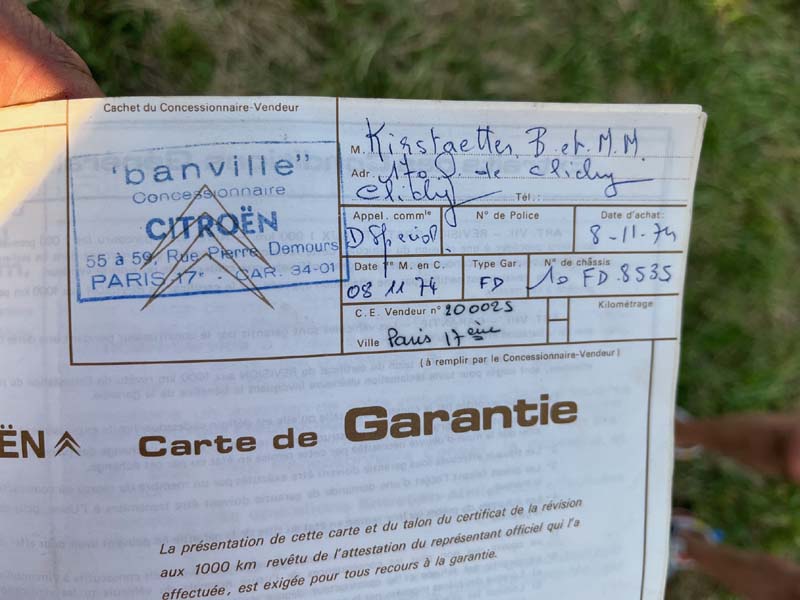 Cachet du Concessionnaire-Vendeur
"banville"
Concessionnaire
CITROËN
55 à 59, Rue Pierre Demours
PARIS 17e - CAR. 34-01
M. Kirstgetter B. et M.M.
Adr. 170 de Clichy
Clichy Tél. :
Appel. commle N° de Police Date d'achat:
D Special 8-11-74
Date 1re M. en C. Type Gar. N° de châssis
08 11 74 FD 10 FD 8535
C. E. Vendeur n° 200025 Kilométrage
Ville Paris 17ème
(à remplir par le Concessionnaire-Vendeur)
ËN Carte de Garantie
La présentation de cette carte et du talon du certificat de la révision
aux 1000 km revêtu de l'attestation du représentant officiel qui l'a
effectuée, est exigée pour tous recours à la garantie.